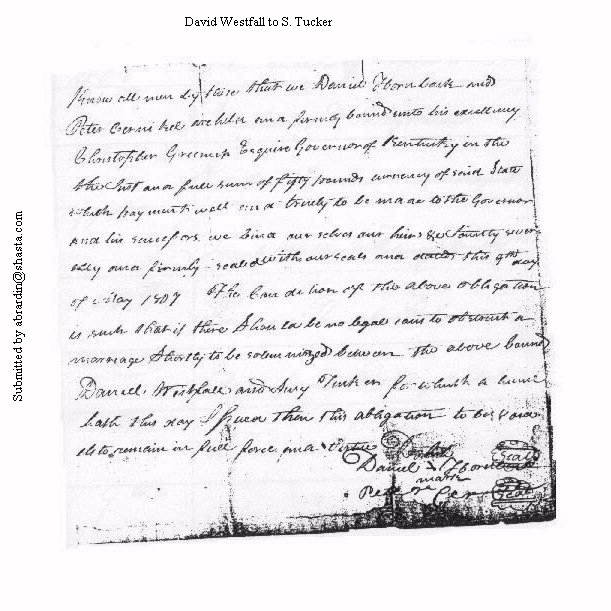 David Westfall to S. Tucker
Submitted by abrardin@shasta.com
Know all men by these that we Daniel Thornback and
Peter are held and firmly bound unto his excellency
Christopher Greenup Esquire Governor of Kentucky in the
the Just and full sum of fifty pounds currency of said State
which payment well and truely to be made to the Governor
and his sucessors we bind our selves our heirs &c Jointly sever
ally and firmly sealed with our seals and dated this 9th day
of May 1807 The Condition of the above obligation
is such that if there Should be no legal caus to obstruct a
marriage Shortly to be solemnized between the above bound
Daniel Westfall and for which a licence
hath this day Issued then this obligation to be void
els to remain in full force and Virtue
Daniel Seal
mark
Peter Seal